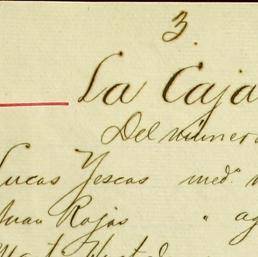 3.
La Caja
Del numera
Lucas Yescas med.
Juan Rojas " ag